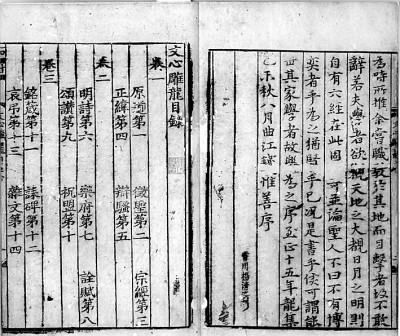 為時所推今嘗職教於其地而目擊者故不敢
辭若夫學者欲觀天地之大覩日月之明則
自有六經在此固 可並論聖人不曰不有博
弈者乎為之猶賢乎已況是書乎侯可謂能
世其家學者故樂為之序至正十五年龍集
乙未秋八月曲江錢惟善序
文心雕龍目錄
卷一
原道第一 徵聖第二 宗經第三
正緯第四 辯騷第五
卷二
明詩第六 樂府第七 詮賦第八
頌讚第九 祝盟第十
卷三
銘箴第十一 誄碑第十二
哀弔第十三 雜文第十四